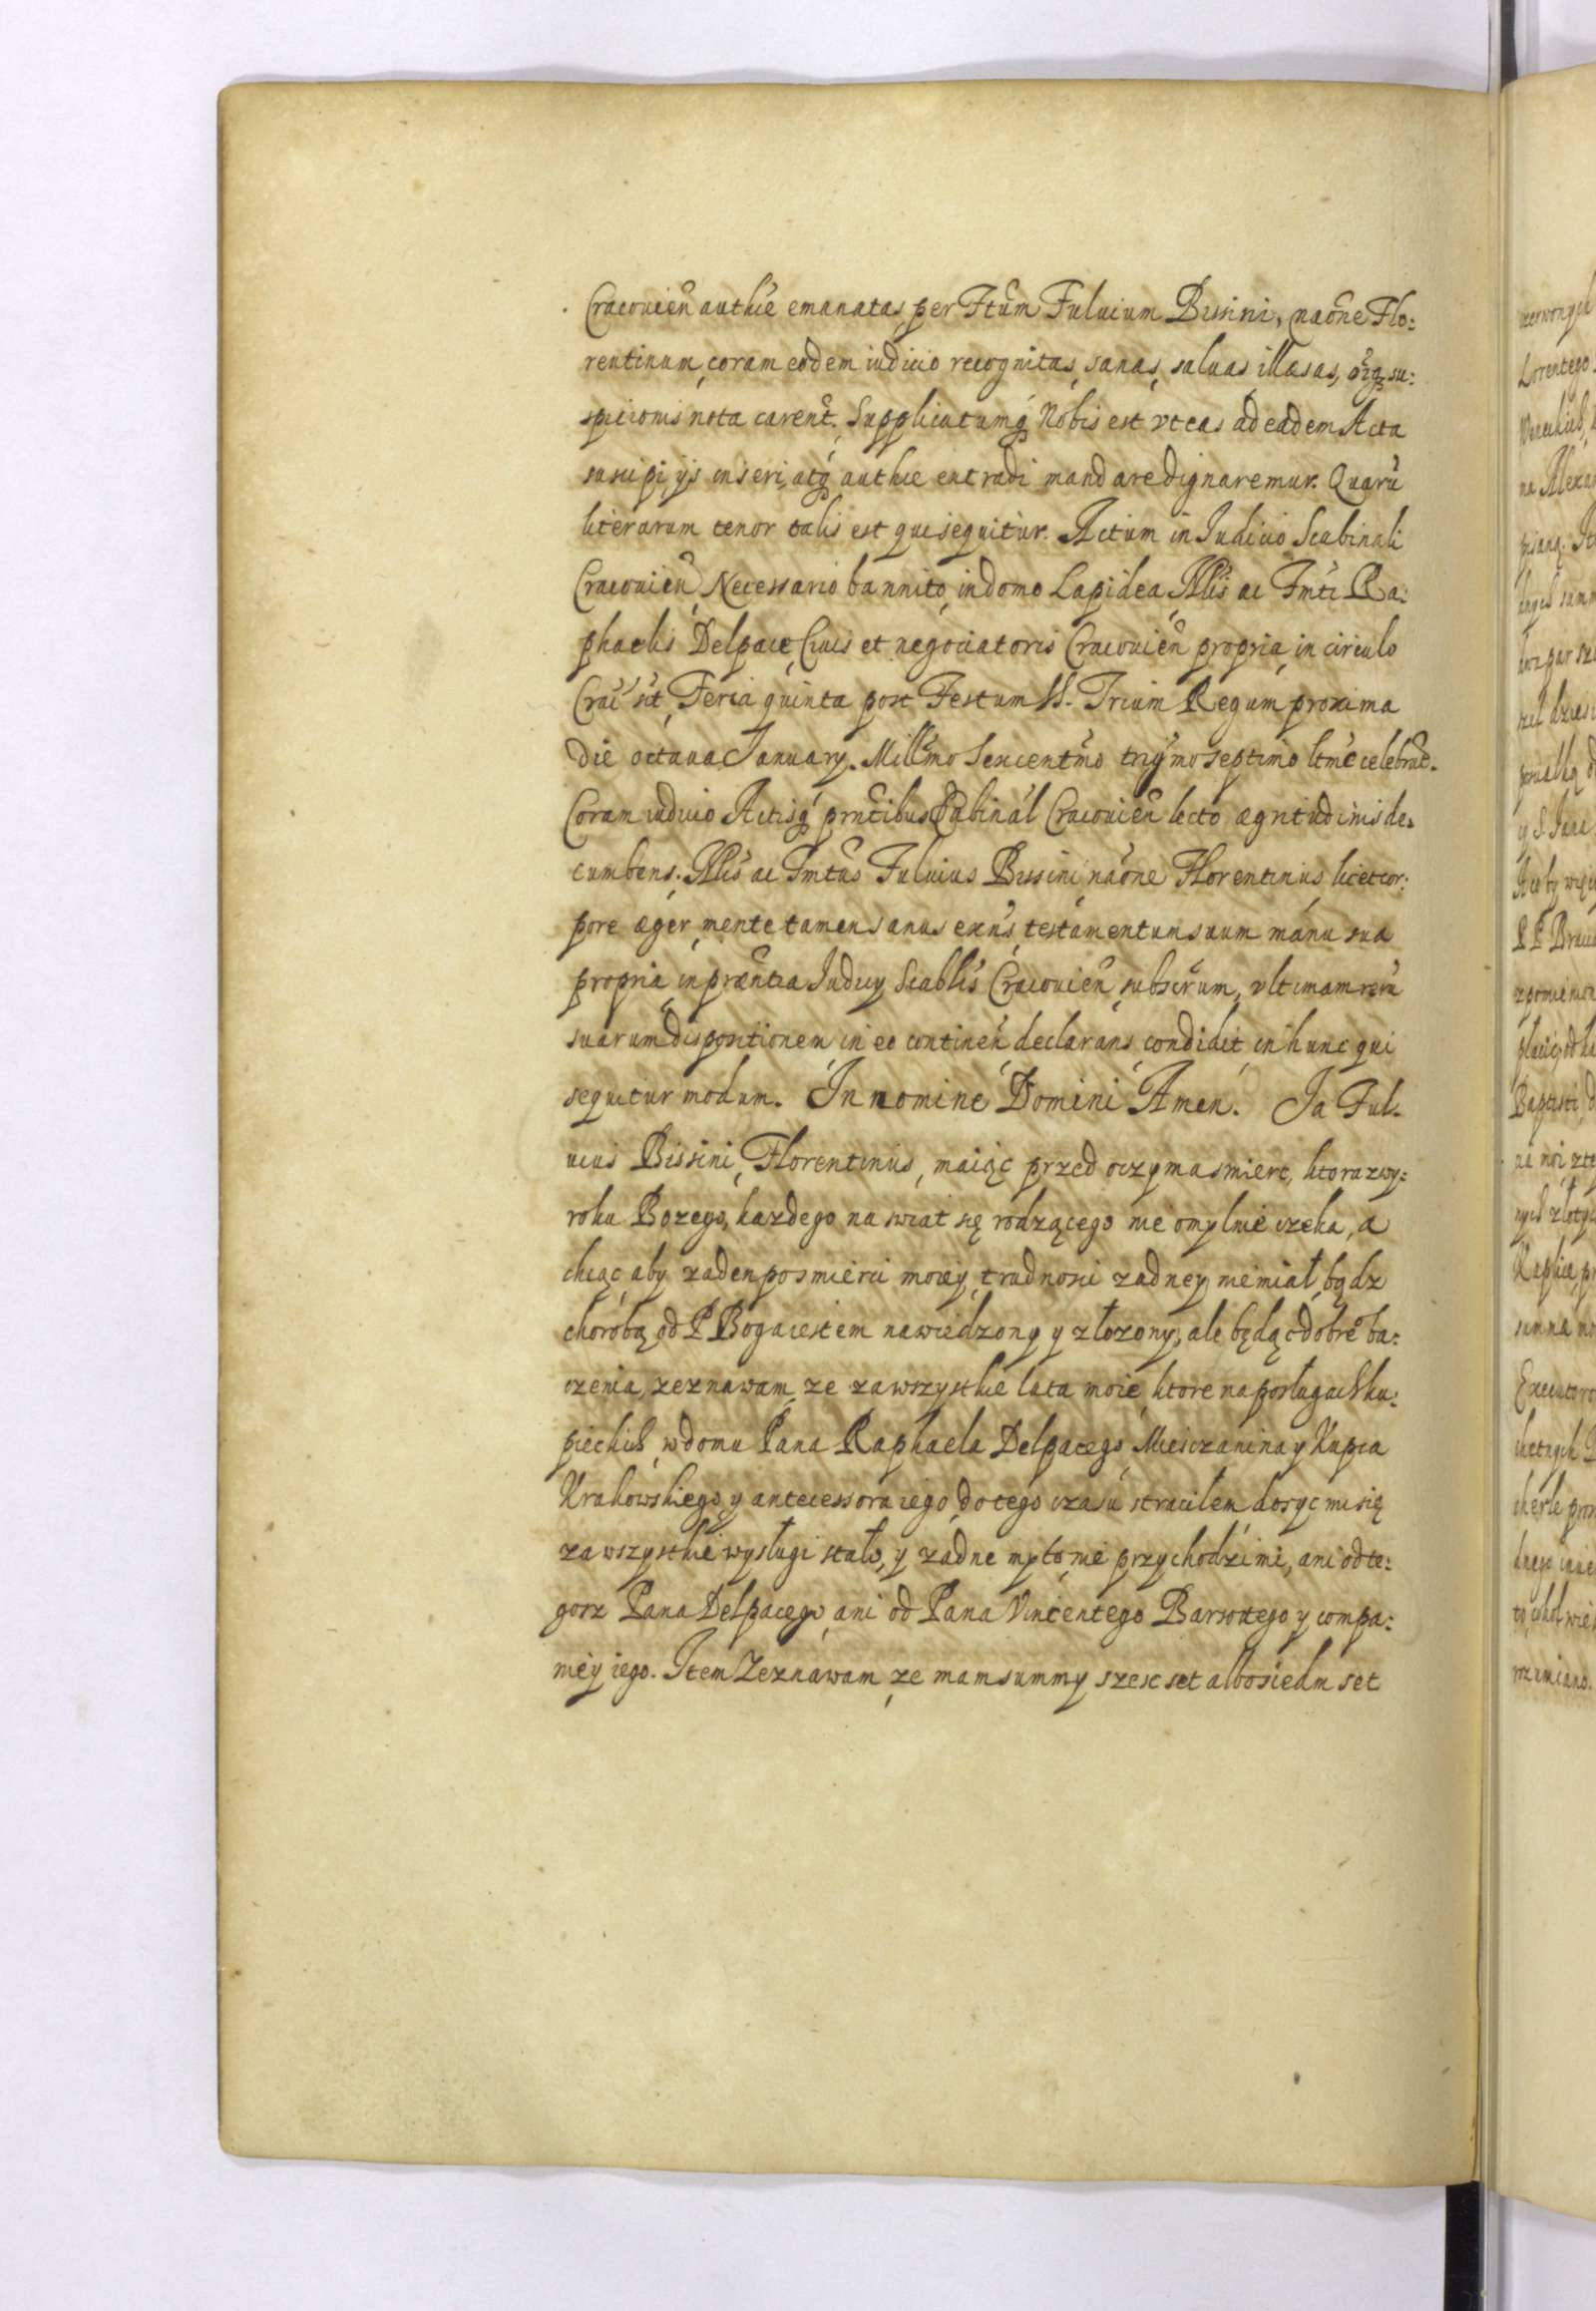 Cracouien̄ authce emanatas, per Ftum Fuluium Bissini, naōne Flo:
rentinum, coram eodem iudicio recognitas, sanas, saluas, illæsas, su:
spicionis nota carent̄. Supplicatumq́ Nobis est vt eas ad eadem Acta
suscipi, ijs inseri, atq́ authce extradi mandare dignaremur. Quarū
literarum tenor talis est qui sequitur. Actum in Iudicio Scabinali
Cracouien̄, Necessario bannito, in domo Lapidea, ac Fmti Ra:
phaelis Delpace, Ciuis et negociatoris Cracouien̄ propria, in circulo
Crac̄ sit, Feria quinta post Festum SS. Trium Regum proxima
die octaua Ianuary. Millm̄o Sexcentm̄o trigm̄o septimo ltm̄e celebrat̄.
Coram iudicio Actisq́ prn̄tibus Scabinal Cracouien̄ lecto ægritudinis de:
cumbens. ac Fmtus Fuluius Bissini naōne Florentinus, licet cor:
pore æger, mente tamen sanus exn̄s, testamentum suum manu sua
propria in præn̄tia Iudicy Scablis Cracouien̄ subscr̄um, vltimam rerū
suarum dispositionem in eo continen̄ declarans, condidit in hunc qui
sequitur modum. In nomine Domini Amen. Ja Ful-
uius Bissini, Florentinus, maiąc przed oczyma smierc, ktora z wy:
roku Bozego, kazdego na swiat się rodzącego nie omylnie czeka, a
chcąc aby zaden po smierci moiey, trudnosci zadney nie miał, bądz
chorobą od P Boga iestem nawiedzony y złozony, ale będąc dobre° ba:
czenia, zeznawam, ze za wszystkie lata moie, ktore na posługach ku:
pieckich, w domu Pana Raphaela Delpacego, Miesczanina y Kupca
Krakowskiego, y antecessora iego, do tego czasu straciłem dosyc mi się
za wszystkie wysługi stało, y zadne myto nie przychodzi mi, ani od te:
gosz Pana Delpacego, ani od Pana Vincentego Barsottego y compa:
niey iego. Item Zeznawam, ze mam summy szesc set albo siedm set